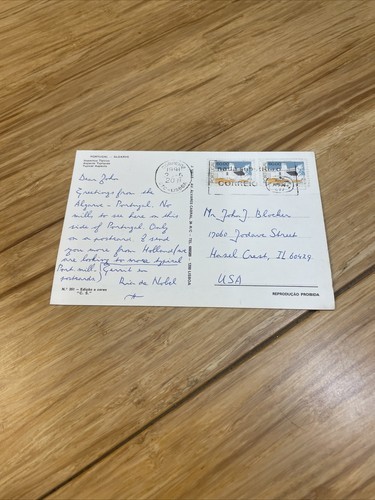 PORTUGAL - ALGARVE
Dear John
Greetings from the
Algarve - Portugal. No
mills to see here in this
side of Portugal. Only
on a postcard. I send
you more from Holland/we
are looking to more typical
Port. mill. (Gerrit in
postcards)
Ria de Nobel
Nº 201 - Edição a cores
1991
CORREIO
Mr John J. Blocker
17060 Jodave Street
Hasel Crest, IL 60429
USA
REPRODUÇÃO PROIBIDA